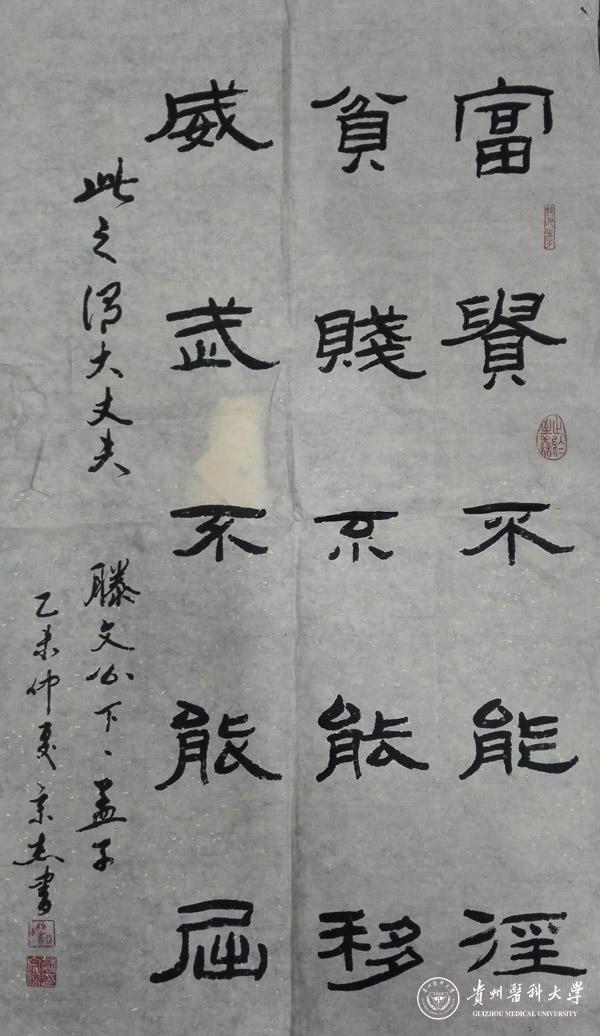 富貴不能淫
貧賤不能移
威武不能屈
此之謂大丈夫 滕文公下、孟子
乙未仲夏 志書
止於至善
貴州醫科大學
GUIZHOU MEDICAL UNIVERSITY